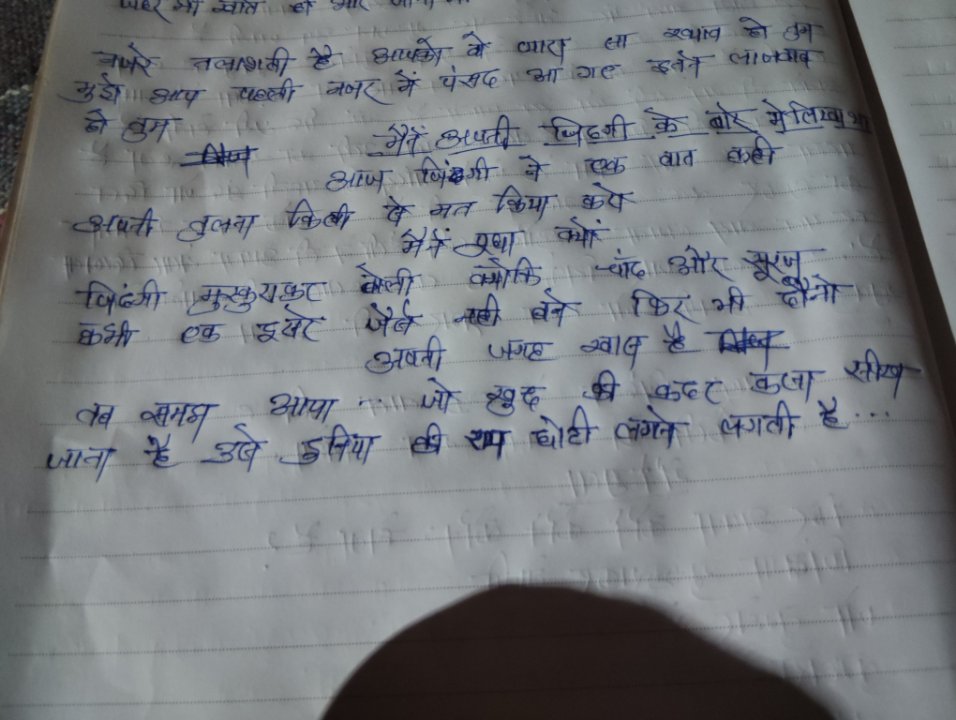 नजरे तलाशती है आपको वो प्यारा सा ख्वाब हो तुम
मुझे आप पहली नजर में पंसद आ गए इतने लाजवाब
हो तुम
मैने अपनी जिदगी के बारे मे लिखा था
आज जिंदगी ने एक बात कही
अपनी तुलना किसी से मत किया करो
मैने पूछा क्यों
जिंदगी मुस्कुराकर बोली क्योकि चांद और सूरज
कभी एक दुसरे जैसे नही बने फिर भी दोनो
अपनी जगह खास है
तब समझ आया ... जो खुद की कदर करना सीख
जाता है उसे दुनिया की राय छोटी लगने लगती है ...